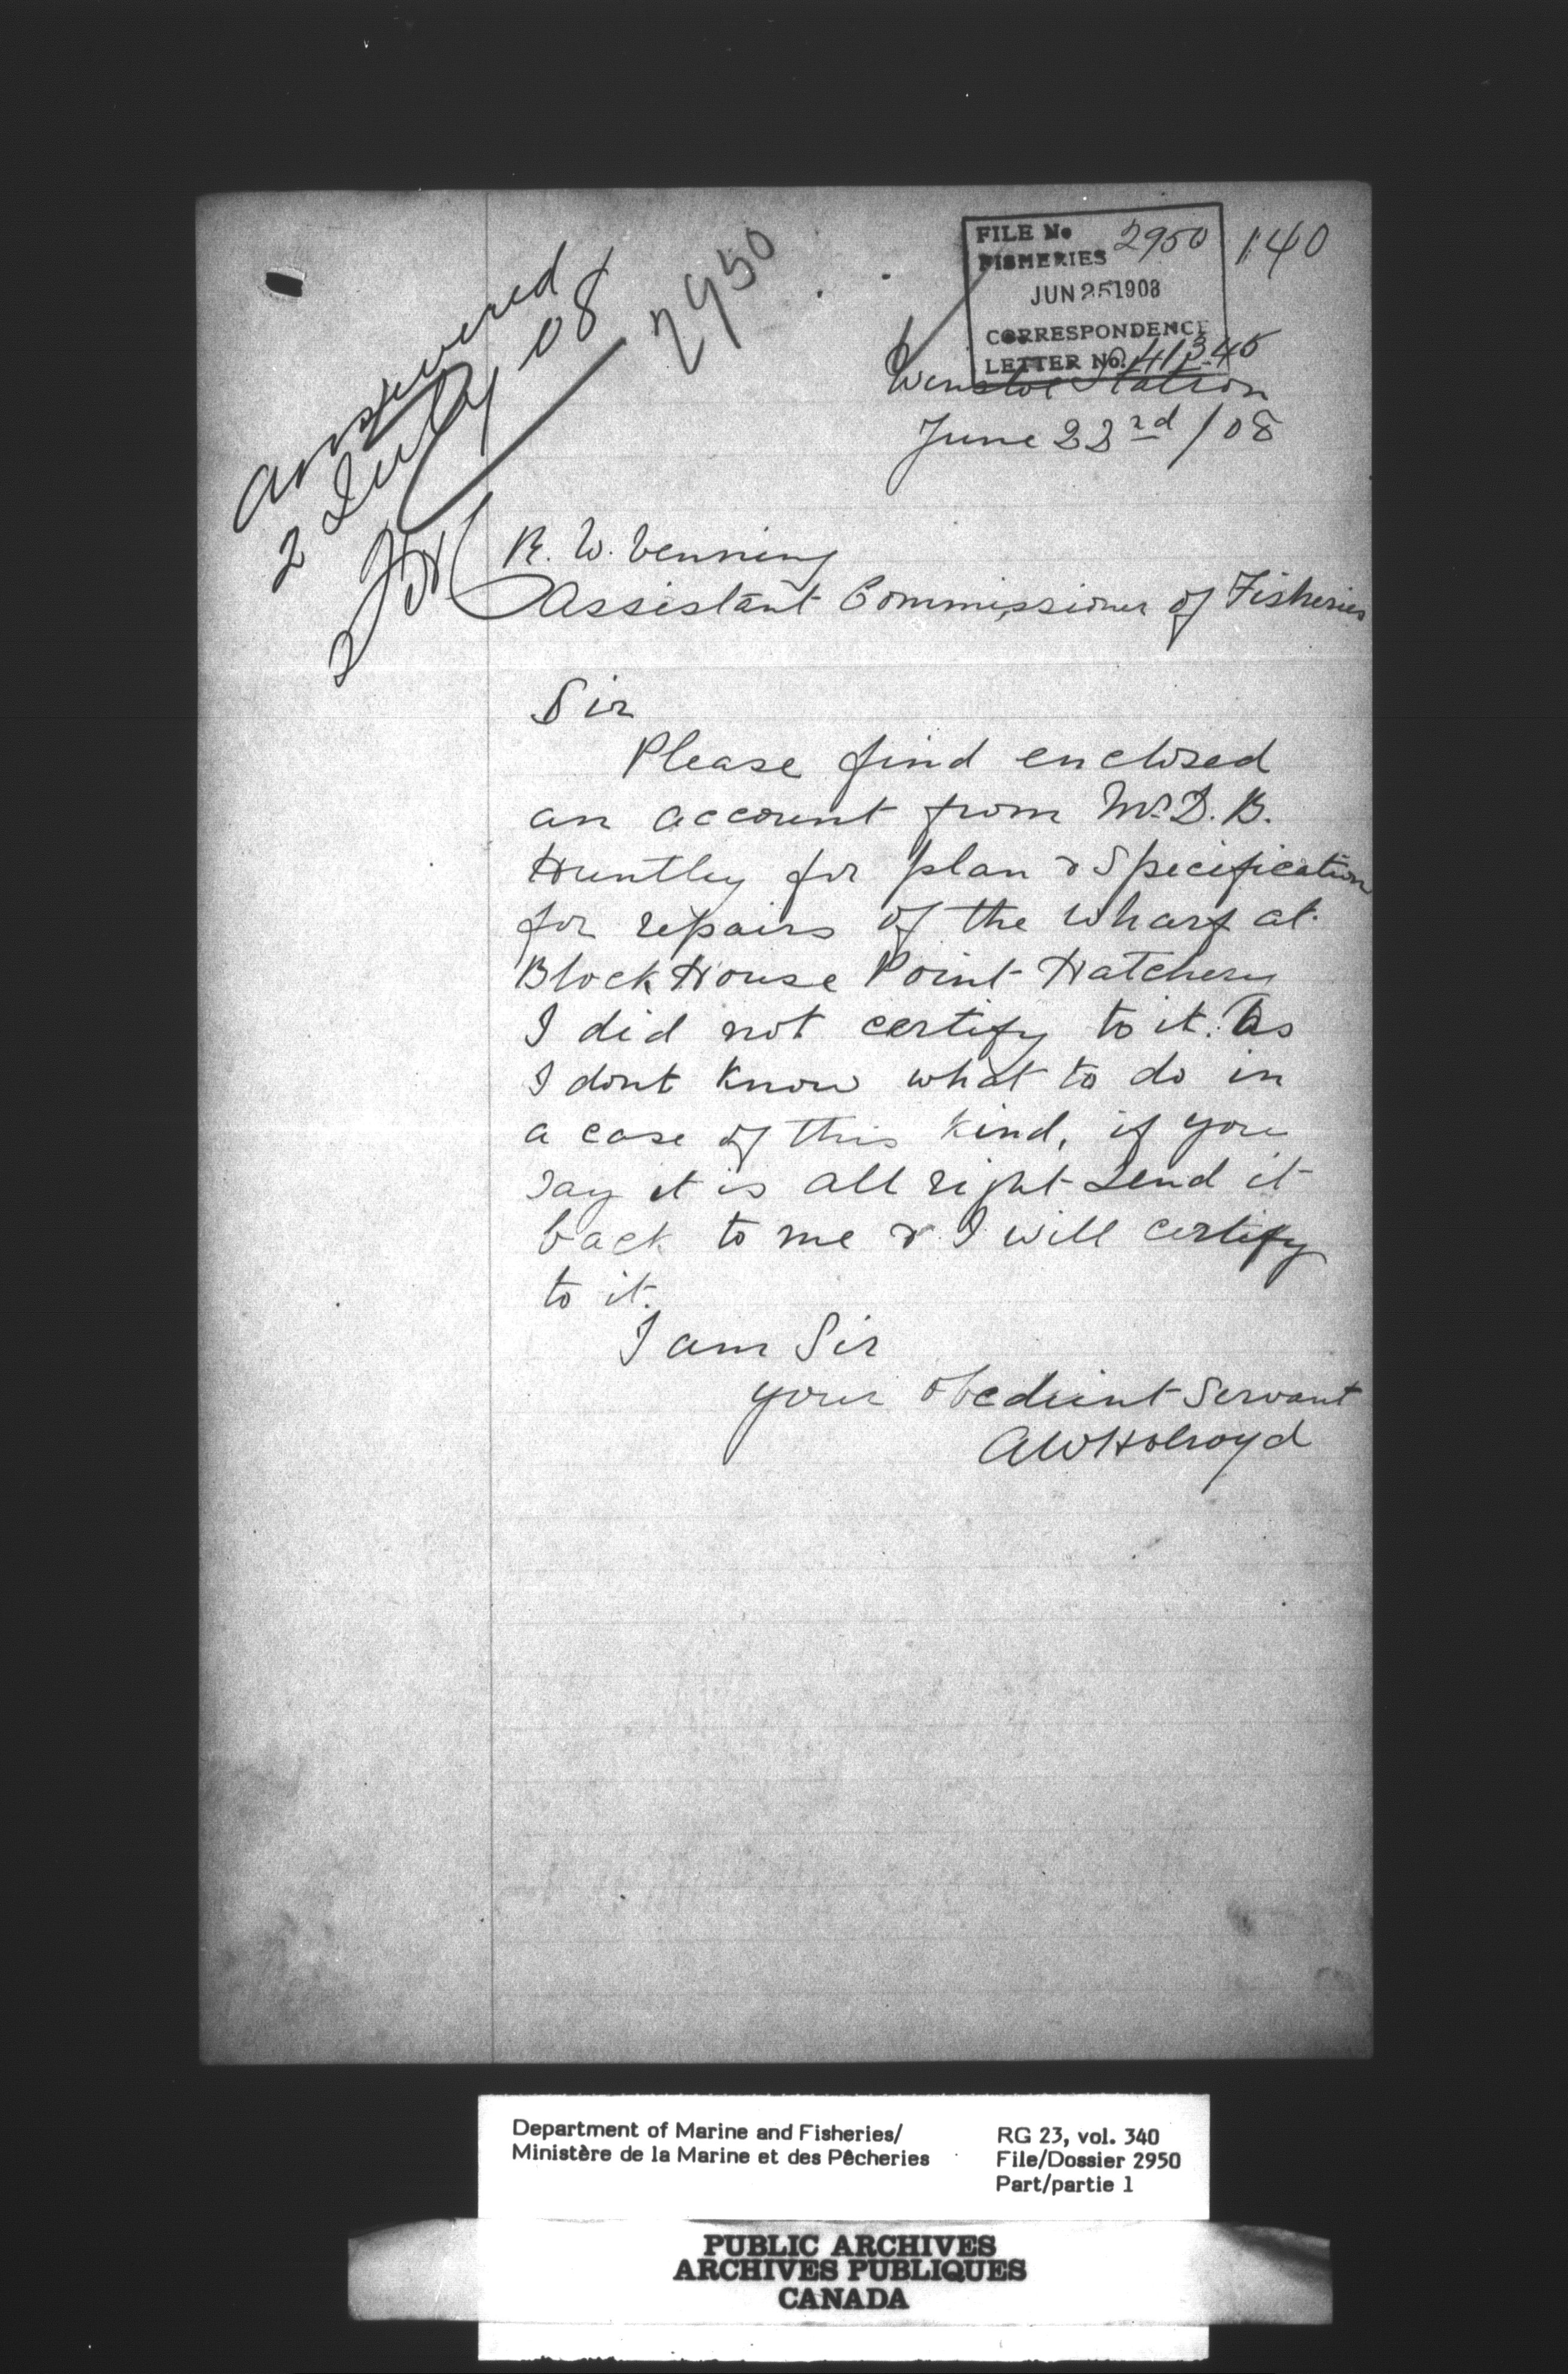 answered
2 July 08
2950
FILE No 2950 140
FISHERIES
JUN 25 1908
CORRESPONDENCE
LETTER No. 41345
Winsloe Station
June 22nd /08
R. W. Venning
Assistant Commissioner of Fisheries
Sir
Please find enclosed
an account from Mr. D. B.
Huntley for plan & Specification
for repairs of the wharf at
Block House Point Hatchery
I did not certify to it. As
I dont know what to do in
a case of this kind, if you
say it is all right send it
back to me & I will certify
to it.
I am Sir
your obedient Servant
A W Holroyd
Department of Marine and Fisheries/
Ministère de la Marine et des Pêcheries
RG 23, vol. 340
File/Dossier 2950
Part/partie 1
PUBLIC ARCHIVES
ARCHIVES PUBLIQUES
CANADA